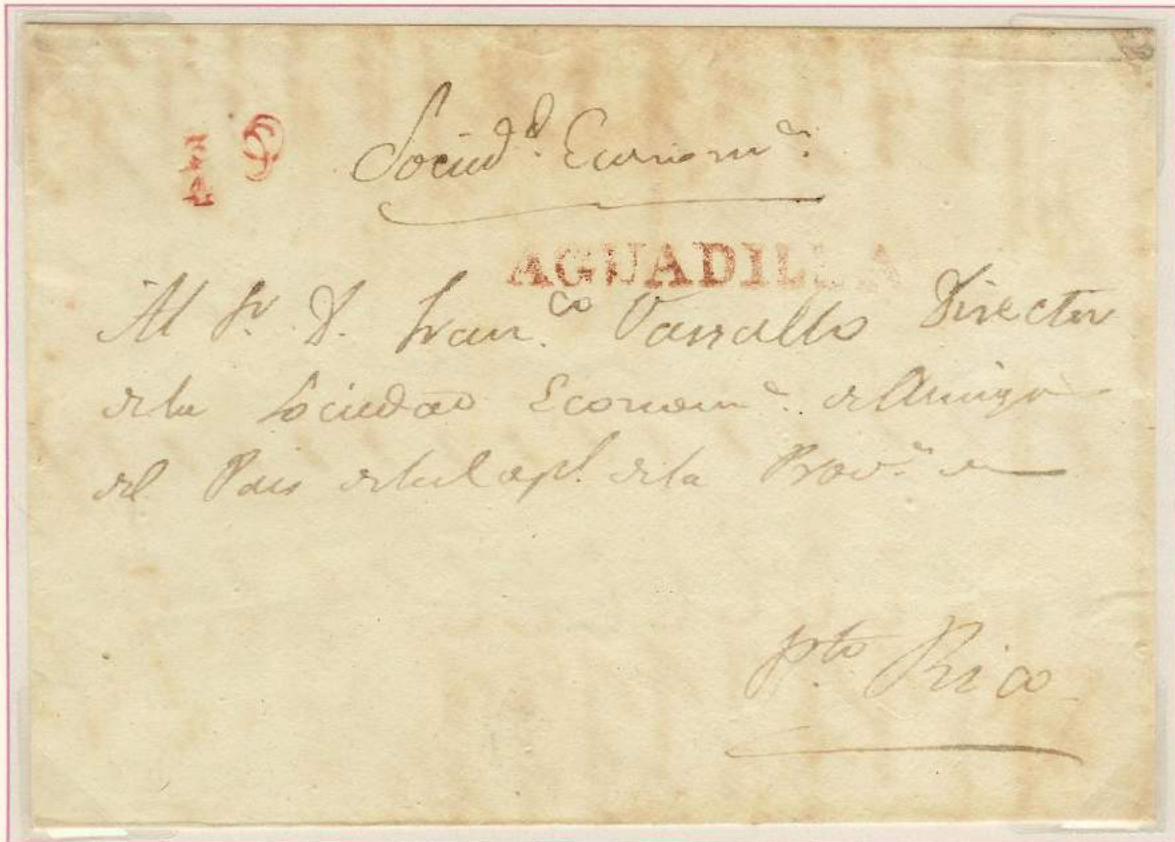 Socied.d Econom.ca
AGUADILLA
Al Sr. D. Fran.co Director
de la Sociedad Econom.ca de Amigos
del Pais de la Capl. de la Prov.a de
Pto Rico